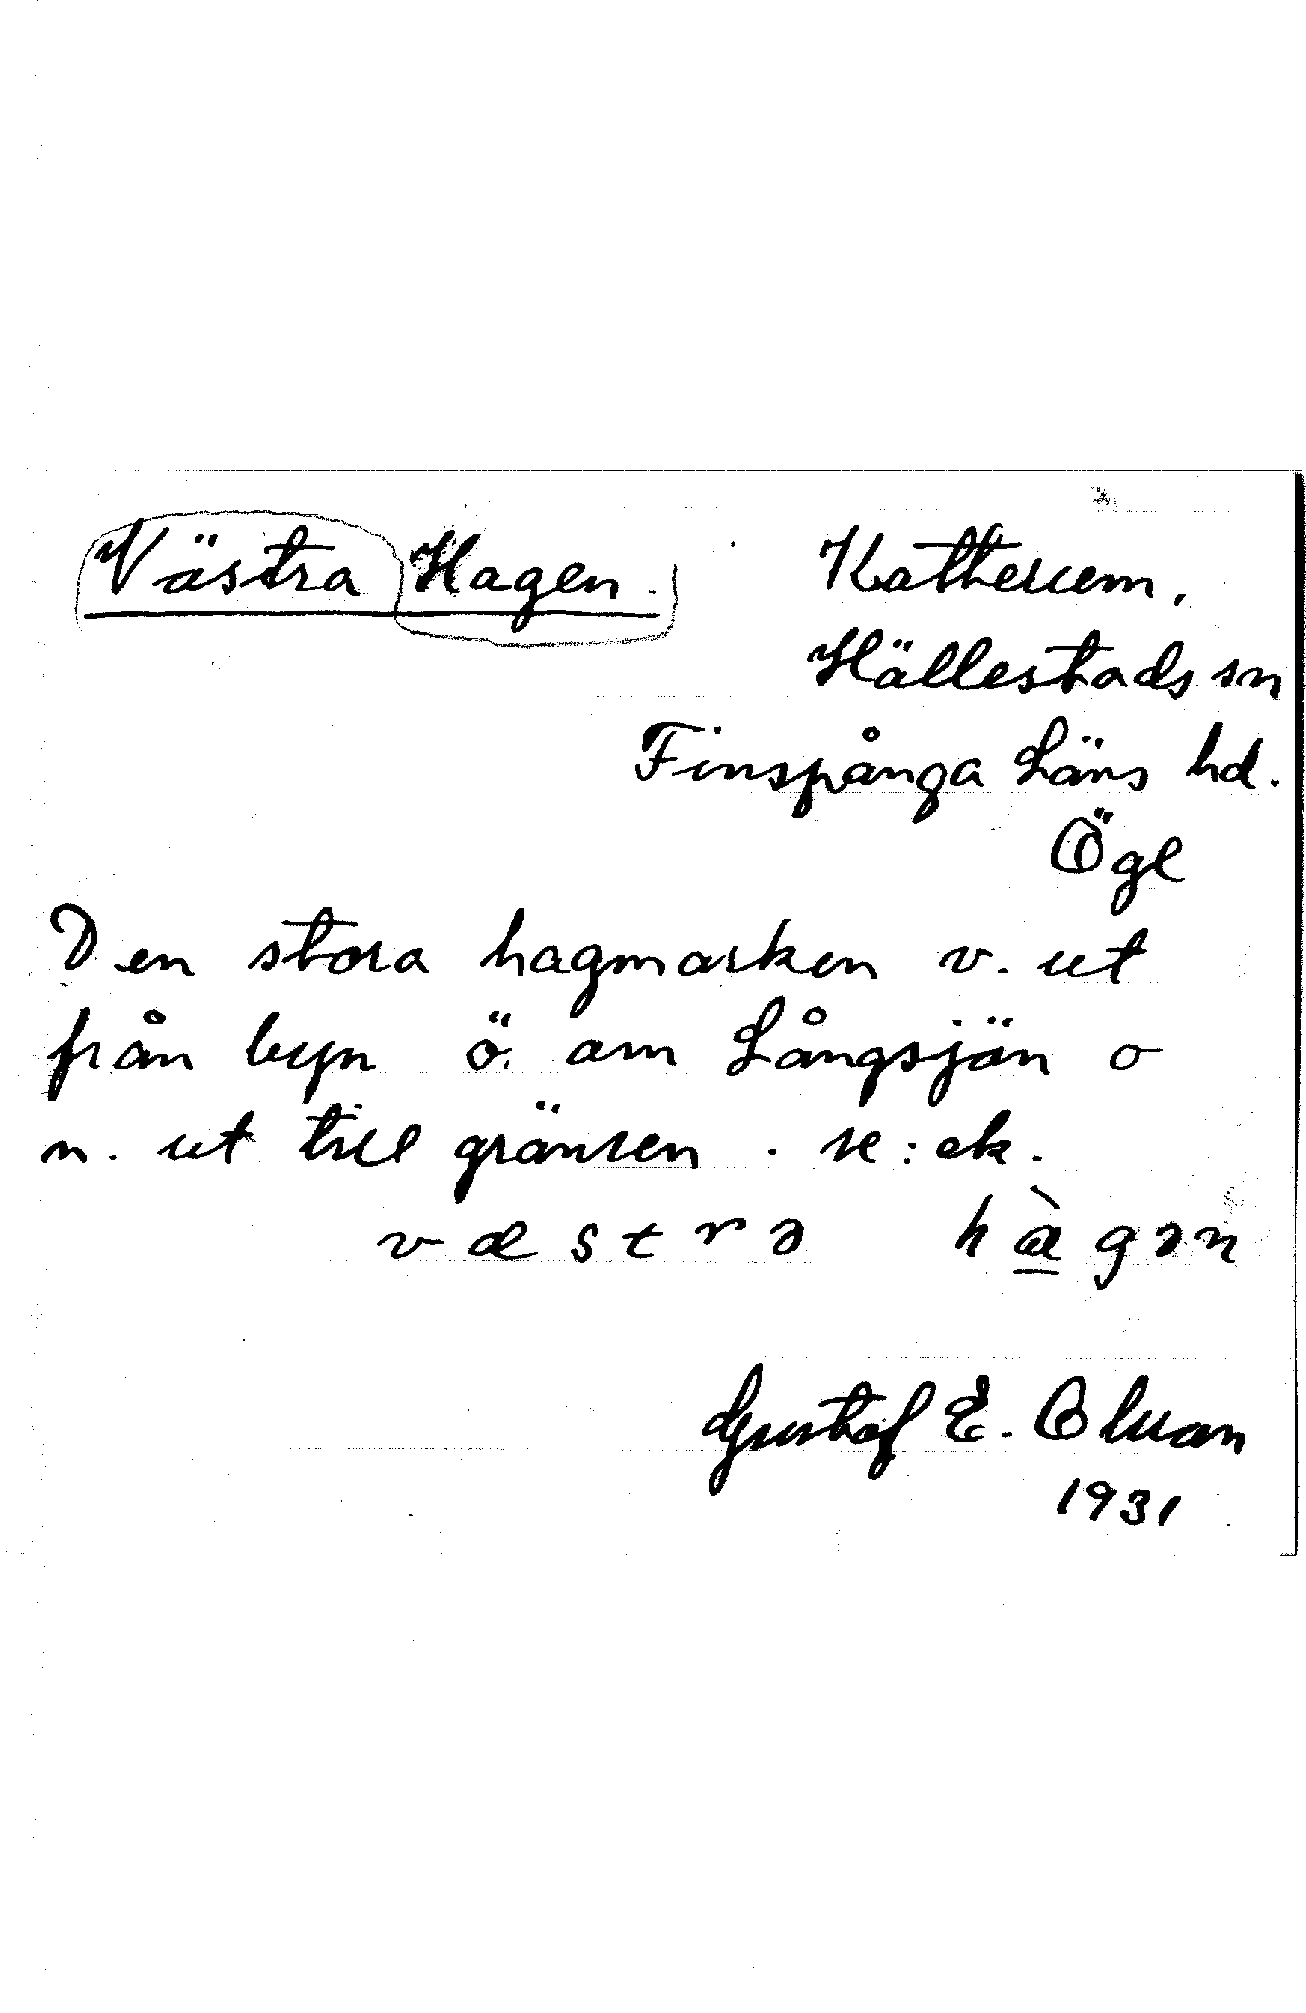 Västra Hagen. Katherum,
Hällestads sn
Finspånga Läns hd.
Ögl
Den stora hagmarken v. ut
från byn ö. om Långsjön o
n. ut till gränsen. se: ek.
væstrə hàgən
Gustaf E.
1931